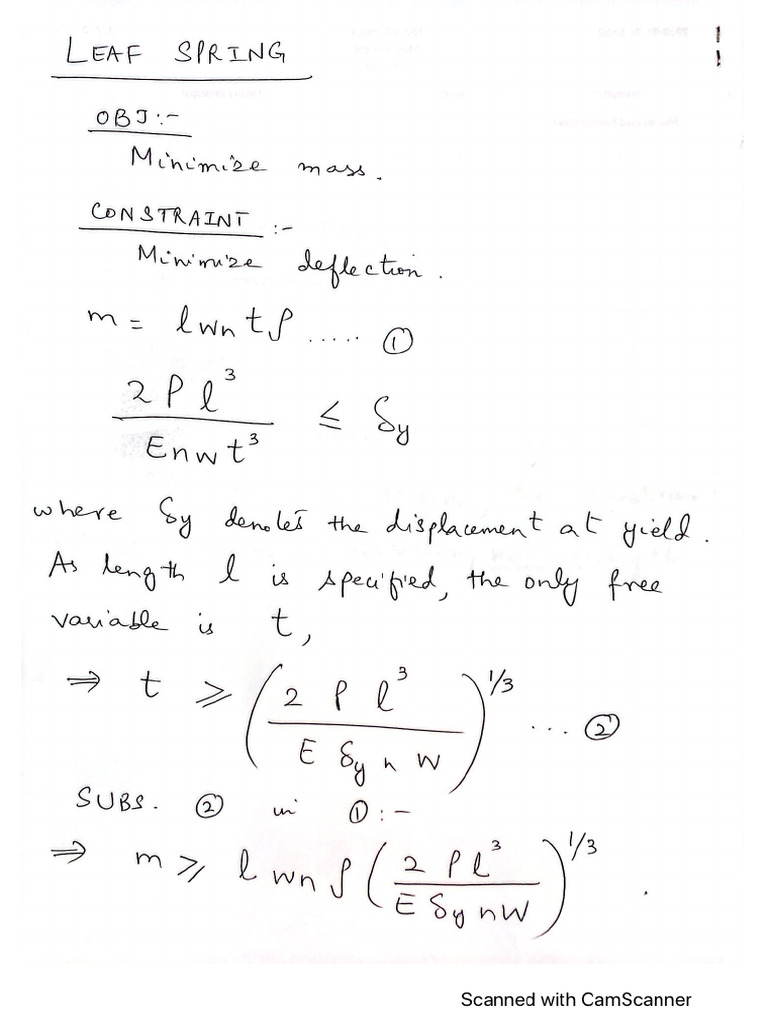 LEAF SPRING
OBJ :-
Minimize mass.
CONSTRAINT :-
Minimize deflection.
m = l w n t ρ ..... ①
2 P l³ / E n w t³ ≤ δy
where δy denotes the displacement at yield.
As length l is specified, the only free
variable is t,
⇒ t ⩾ (2 P l³ / E δy n w)^1/3 ... ②
SUBS. ② in ① :-
⇒ m ⩾ l w n ρ (2 P l³ / E δy n w)^1/3
Scanned with CamScanner